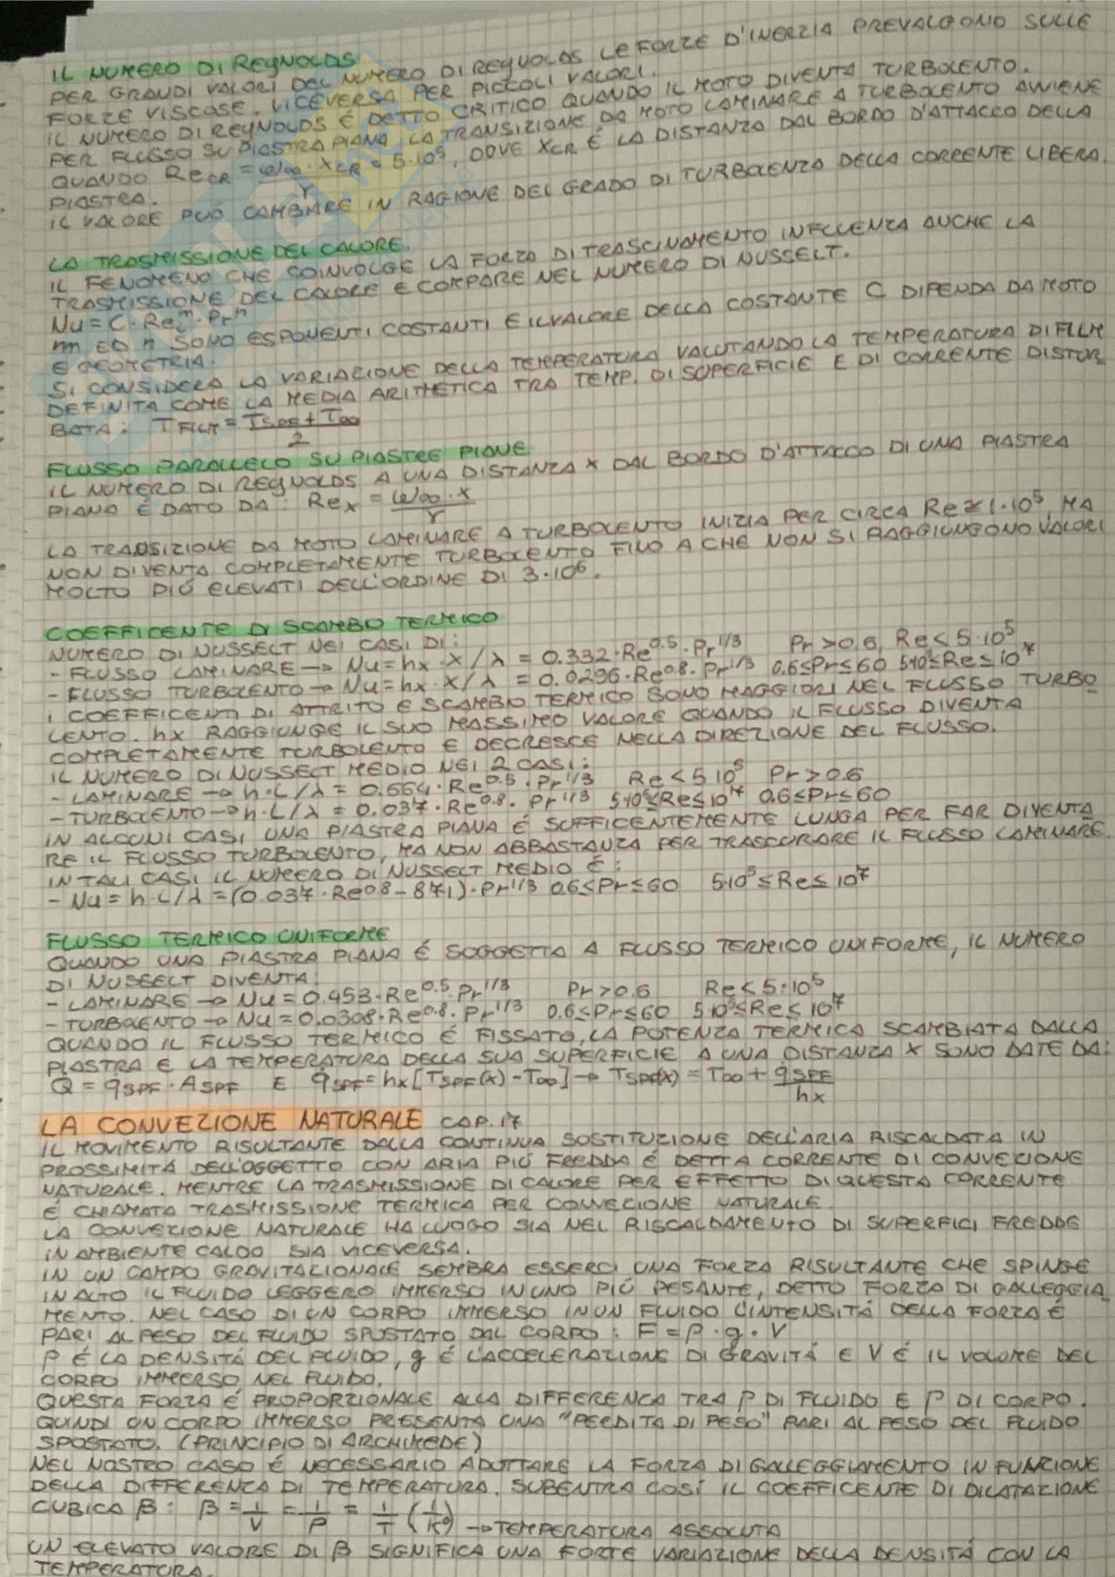 IL NUMERO DI REYNOLDS
PER GRANDI VALORI DEL NUMERO DI REYNOLDS LE FORZE D'INERZIA PREVALGONO SULLE
FORZE VISCOSE. VICEVERSA PER PICCOLI VALORI.
IL NUMERO DI REYNOLDS É DETTO CRITICO QUANDO IL MOTO DIVENTA TURBOLENTO.
PER FLUSSO SU PIASTRA PIANA LA TRANSIZIONE DA MOTO LAMINARE A TURBOLENTO AVVIENE
QUANDO Re_CR = ω∞ · X_CR / γ = 5·10⁵, DOVE X_CR É LA DISTANZA DAL BORDO D'ATTACCO DELLA
PIASTRA.
IL VALORE PUÒ CAMBIARE IN RAGIONE DEL GRADO DI TURBOLENZA DELLA CORRENTE LIBERA.
LA TRASMISSIONE DEL CALORE.
IL FENOMENO CHE COINVOLGE LA FORZA DI TRASCINAMENTO INFLUENZA ANCHE LA
TRASMISSIONE DEL CALORE E COMPARE NEL NUMERO DI NUSSELT.
Nu = C · Re_L^m · Pr^n
m ED n SONO ESPONENTI COSTANTI E IL VALORE DELLA COSTANTE C DIPENDA DA MOTO
E GEOMETRIA.
SI CONSIDERA LA VARIAZIONE DELLA TEMPERATURA VALUTANDO LA TEMPERATURA DI FILM
DEFINITA COME LA MEDIA ARITMETICA TRA TEMP. DI SUPERFICIE E DI CORRENTE DISTUR
BATA: T_FILM = (T_SPF + T∞) / 2
FLUSSO PARALLELO SU PIASTRE PIANE
IL NUMERO DI REYNOLDS A UNA DISTANZA X DAL BORDO D'ATTACCO DI UNA PIASTRA
PIANA É DATO DA: Re_X = ω∞ · X / γ
LA TRANSIZIONE DA MOTO LAMINARE A TURBOLENTO INIZIA PER CIRCA Re ≅ 1·10⁵, MA
NON DIVENTA COMPLETAMENTE TURBOLENTO FINO A CHE NON SI RAGGIUNGONO VALORI
MOLTO PIÚ ELEVATI DELL'ORDINE DI 3·10⁶.
COEFFICENTE DI SCAMBIO TERMICO
NUMERO DI NUSSELT NEI CASI DI:
- FLUSSO LAMINARE → Nu = hx · X/λ = 0.332·Re^0.5 · Pr^1/3 Pr > 0.6, Re < 5·10⁵
- FLUSSO TURBOLENTO → Nu = hx · X/λ = 0.0296·Re^0.8 · Pr^1/3 0.6≤Pr≤60 5·10⁵≤Re≤10⁷
I COEFFICENTI DI ATTRITO E SCAMBIO TERMICO SONO MAGGIORI NEL FLUSSO TURBO
LENTO. hx RAGGIUNGE IL SUO MASSIMO VALORE QUANDO IL FLUSSO DIVENTA
COMPLETAMENTE TURBOLENTO E DECRESCE NELLA DIREZIONE DEL FLUSSO.
IL NUMERO DI NUSSELT MEDIO NEI 2 CASI:
- LAMINARE → h·L/λ = 0.664·Re^0.5 · Pr^1/3 Re < 5·10⁵ Pr > 0.6
- TURBOLENTO → h·L/λ = 0.037·Re^0.8 · Pr^1/3 5·10⁵≤Re≤10⁷ 0.6≤Pr≤60
IN ALCUNI CASI UNA PIASTRA PIANA É SUFFICENTEMENTE LUNGA PER FAR DIVENTA
RE IL FLUSSO TURBOLENTO, MA NON ABBASTANZA PER TRASCURARE IL FLUSSO LAMINARE.
IN TALI CASI IL NUMERO DI NUSSELT MEDIO É:
- Nu = h·L/λ = (0.037·Re^0.8 - 871)·Pr^1/3 0.6≤Pr≤60 5·10⁵≤Re≤10⁷
FLUSSO TERMICO UNIFORME
QUANDO UNA PIASTRA PIANA É SOGGETTA A FLUSSO TERMICO UNIFORME, IL NUMERO
DI NUSSELT DIVENTA:
- LAMINARE → Nu = 0.453·Re^0.5 · Pr^1/3 Pr > 0.6 Re < 5·10⁵
- TURBOLENTO → Nu = 0.0308·Re^0.8 · Pr^1/3 0.6≤Pr≤60 5·10⁵≤Re≤10⁷
QUANDO IL FLUSSO TERMICO É FISSATO, LA POTENZA TERMICA SCAMBIATA DALLA
PIASTRA E LA TEMPERATURA DELLA SUA SUPERFICIE A UNA DISTANZA X SONO DATE DA:
Q = q_SPF · A_SPF E q_SPF = hx [T_SPF(x) - T∞] → T_SPF(x) = T∞ + q_SPF / hx
LA CONVEZIONE NATURALE CAP. 17
IL MOVIMENTO RISULTANTE DALLA CONTINUA SOSTITUZIONE DELL'ARIA RISCALDATA IN
PROSSIMITÁ DELL'OGGETTO CON ARIA PIÚ FREDDA É DETTA CORRENTE DI CONVEZIONE
NATURALE. MENTRE LA TRASMISSIONE DI CALORE PER EFFETTO DI QUESTA CORRENTE
É CHIAMATA TRASMISSIONE TERMICA PER CONVEZIONE NATURALE.
LA CONVEZIONE NATURALE HA LUOGO SIA NEL RISCALDAMENTO DI SUPERFICI FREDDE
IN AMBIENTE CALDO SIA VICEVERSA.
IN UN CAMPO GRAVITAZIONALE SEMBRA ESSERCI UNA FORZA RISULTANTE CHE SPINGE
IN ALTO IL FLUIDO LEGGERO IMMERSO IN UNO PIÚ PESANTE, DETTO FORZA DI GALLEGGIA
MENTO. NEL CASO DI UN CORPO IMMERSO IN UN FLUIDO L'INTENSITÁ DELLA FORZA É
PARI AL PESO DEL FLUIDO SPOSTATO DAL CORPO: F = ρ · g · V
ρ É LA DENSITÁ DEL FLUIDO, g É L'ACCELERAZIONE DI GRAVITÁ E V É IL VOLUME DEL
CORPO IMMERSO NEL FLUIDO.
QUESTA FORZA É PROPORZIONALE ALLA DIFFERENZA TRA ρ DI FLUIDO E ρ DI CORPO.
QUINDI UN CORPO IMMERSO PRESENTA UNA "PERDITA DI PESO" PARI AL PESO DEL FLUIDO
SPOSTATO. (PRINCIPIO DI ARCHIMEDE)
NEL NOSTRO CASO É NECESSARIO ADOTTARE LA FORZA DI GALLEGGIAMENTO IN FUNZIONE
DELLA DIFFERENZA DI TEMPERATURA. SUBENTRA COSÍ IL COEFFICENTE DI DILATAZIONE
CUBICA β: β = 1/V = 1/ρ = 1/T (1/K°) → TEMPERATURA ASSOLUTA
UN ELEVATO VALORE DI β SIGNIFICA UNA FORTE VARIAZIONE DELLA DENSITÁ CON LA
TEMPERATURA.